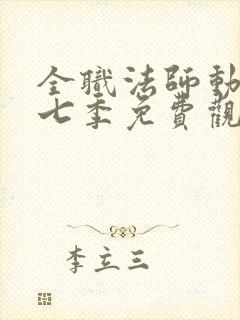 全職法師動
七季免費觀
李立三